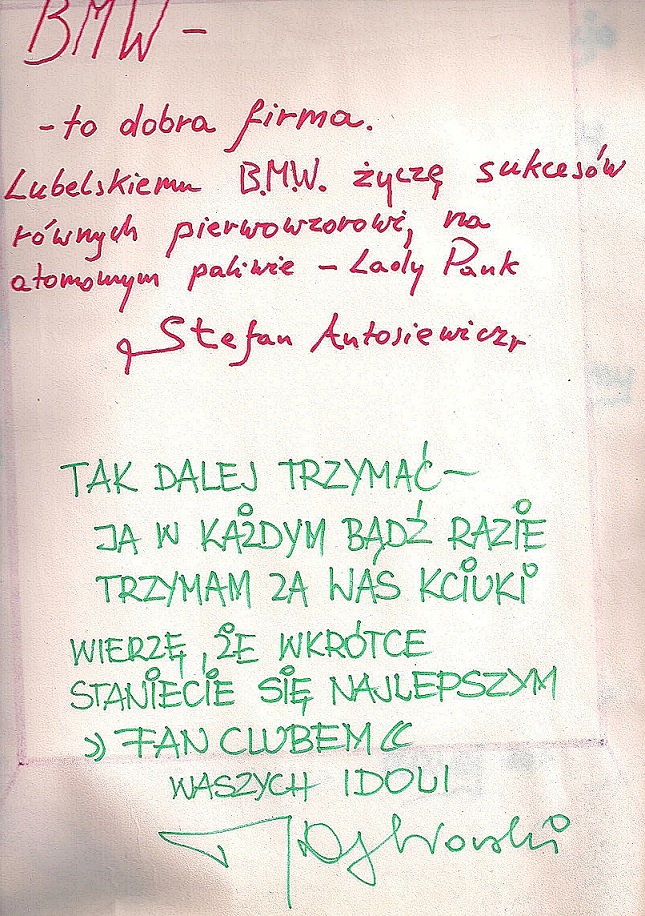 BMW -
- to dobra firma.
Lubelskiemu B.M.W. życzę sukcesów
równych pierwowzorowi, na
atomowym paliwie - Lady Pank
Stefan Antosiewicz
TAK DALEJ TRZYMAĆ -
JA W KAŻDYM BĄDŹ RAZIE
TRZYMAM ZA WAS KCIUKI
WIERZĘ, ŻE WKRÓTCE
STANIECIE SIĘ NAJLEPSZYM
» FAN CLUBEM «
WASZYCH IDOLI